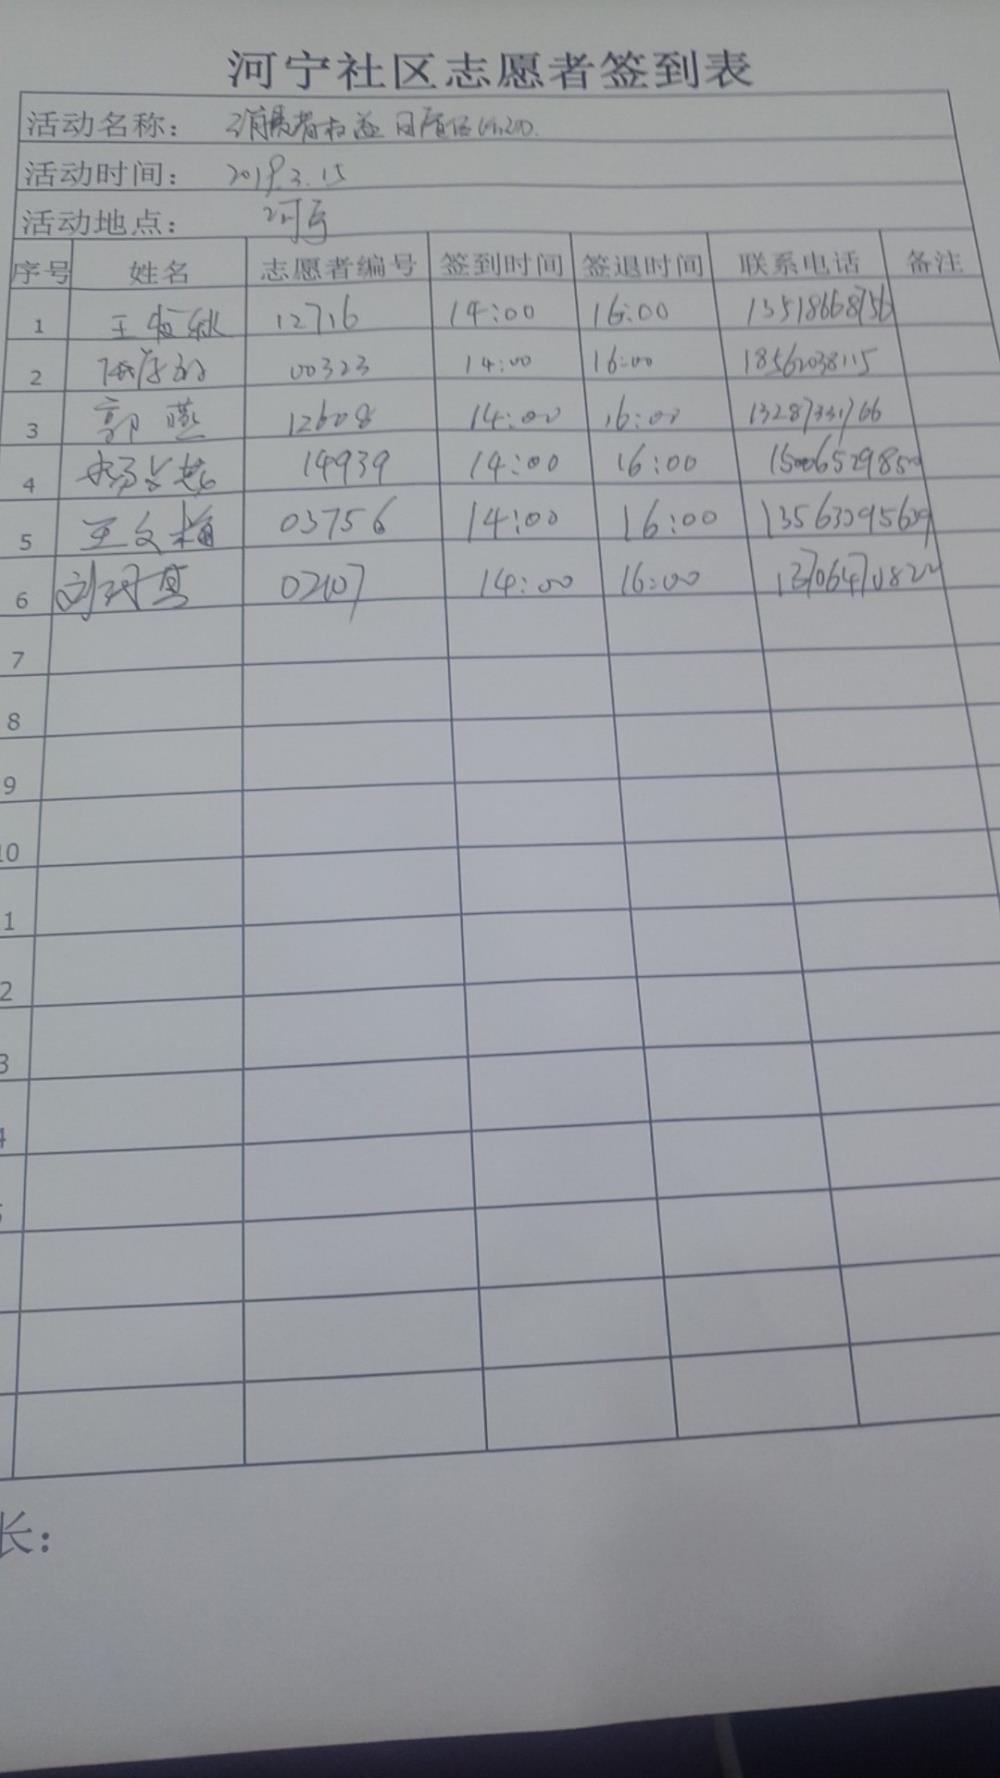 河宁社区志愿者签到表
活动名称： 消费者权益日宣传
活动时间： 2019.3.15
活动地点： 河宁
序号 姓名 志愿者编号 签到时间 签退时间 联系电话 备注
1 王恒秋 12716 14:00 16:00 13518668756
2 00323 14:00 16:00 18562038115
3 郭燕 12608 14:00 16:00 13287331766
4 14939 14:00 16:00 15006529850
5 王文梅 03756 14:00 16:00 13563295609
6 02107 14:00 16:00
7
8
9
10
1
2
3
4
5
长：